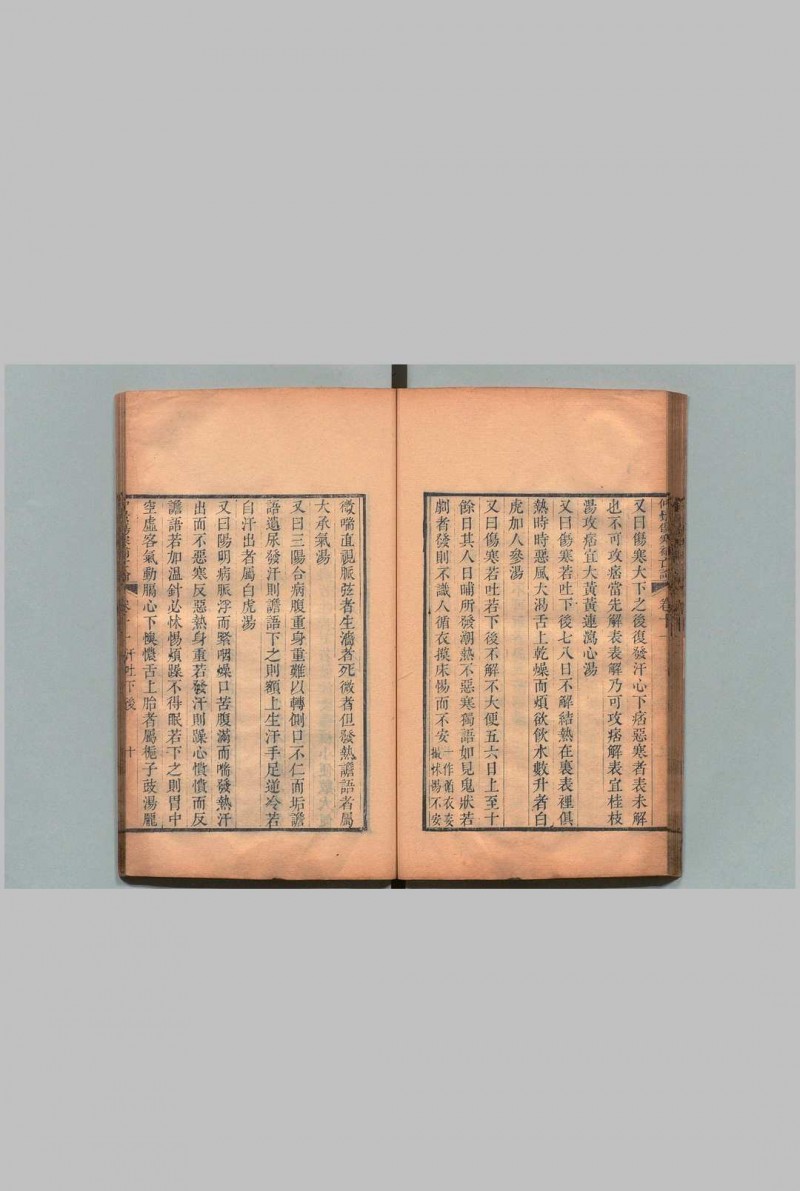 又曰傷寒大下之後復發汗心下痞惡寒者表未解
也不可攻痞當先解表表解乃可攻痞解表宜桂枝
湯攻痞宜大黃黃連瀉心湯
又曰傷寒若吐下後七八日不解結熱在裏表裡俱
熱時時惡風大渴舌上乾燥而煩欲飲水數升者白
虎加人參湯
又曰傷寒若吐若下後不解不大便五六日上至十
餘日其人日晡所發潮熱不惡寒獨語如見鬼狀若
劇者發則不識人循衣摸床惕而不安
一作循衣妄
撮怵惕不安
微喘直視脈弦者生濇者死微者但發熱譫語者屬
大承氣湯
又曰三陽合病腹重身重難以轉側口不仁而垢譫
語遺尿發汗則譫語下之則額上生汗手足逆冷若
自汗出者屬白虎湯
又曰陽明病脈浮而緊咽燥口苦腹滿而喘發熱汗
出而不惡寒反惡熱身重若發汗則躁心憒憒而反
譫語若加溫針必怵惕煩躁不得眠若下之則胃中
空虛客氣動膈心下懊憹舌上胎者屬梔子豉湯
汗吐下後
十